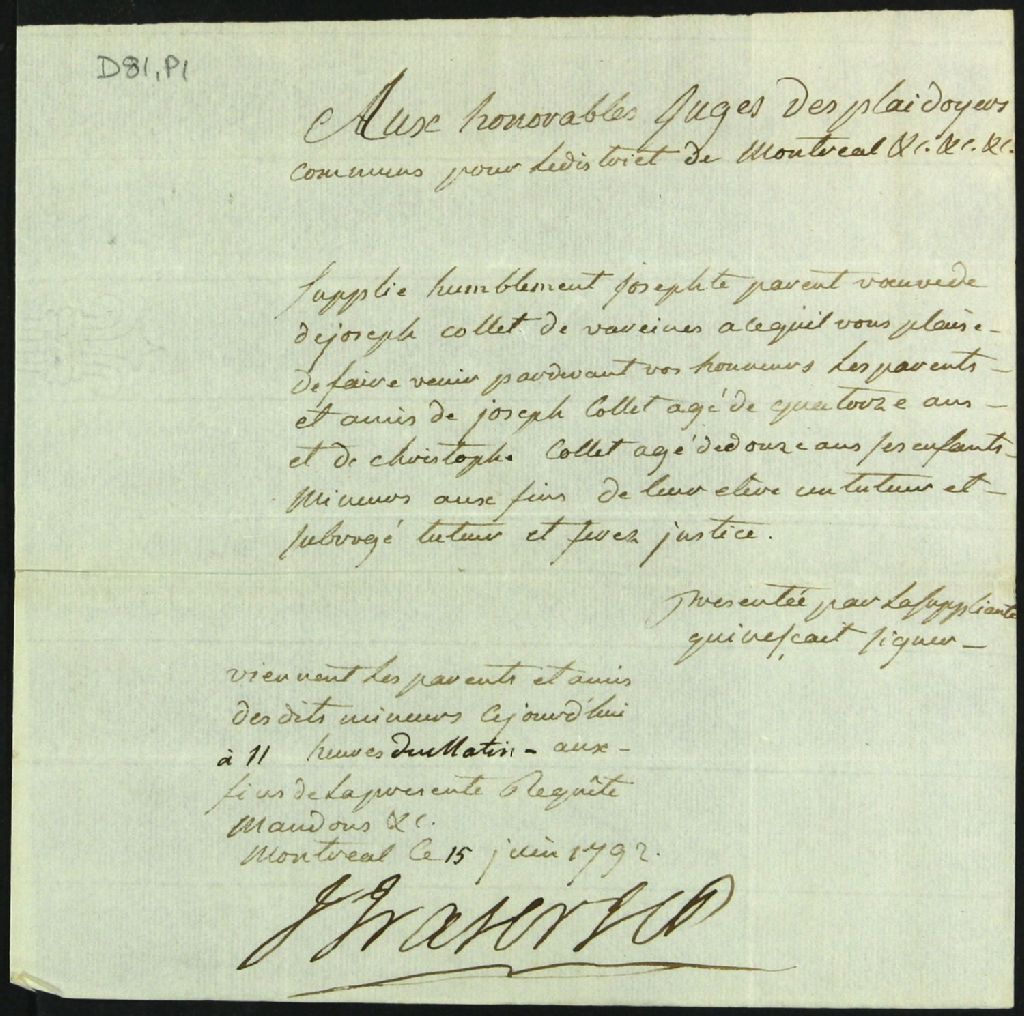 D81,P1
Aux honorables Juges des plaidoyers
communs pour Ledistrict de Montreal &c. &c. &c.
Supplie humblement josephte parent veuvede
dejoseph Collet de vareines acequil vous plaise-
de faire venir pardevant vos honneurs Les parents-
et amis de joseph Collet agé de quatorze ans-
et de christophe Collet agé dedouze ans ses enfants-
Mineurs aux fins de leur elire un tuteur et-
subrogé tuteur et ferez justice.
presentée par La Suppliante
qui ne sçait signer-
viennent Les parents et amis
des dits mineurs Cejourd'hui
à 11 heures du Matin- aux-
fins de La presente Requête
Mandons &c.
Montreal Ce 15 juin 1792.
J Fraser JCP